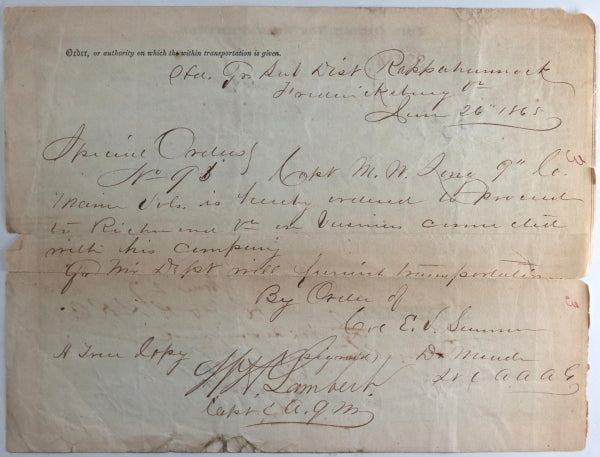 Order, or authority on which the within transportation is given.
Hd. Qrs Sub Dist Rappahannock
Fredericksburg Va
June 26" 1865
Special Orders
No 9 Capt M. W. 9" Co.
Vols. is hereby ordered to proceed
to Richmond Va on business connected
with his company
Qr Mr Dept will furnish transportation
By Order of
Col E. V. Sumner
A True Copy (signed) Meade
Lambert Lt & A A A G
Capt & A. Q. M.